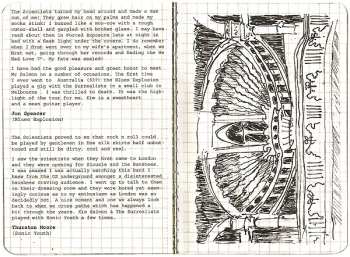 The Scientists turned my head around and made a man
out of me! They grew hair on my palms and made my
socks stink! I buzzed like a neo-vox with a tough
outer-shell and gargled with broken glass. I may have
read about them in Forced Exposure late at night in
bed with a flash light under the covers. I do remember
when I first went over to my wife's apartment, when we
first met, going through her records and finding the We
Had Love 7". My fate was sealed!
I have had the good pleasure and great honor to meet
Mr Salmon on a number of occasions. The first time
I ever went to Australia (92?) the Blues Explosion
played a gig with the Surrealists in a small club in
Melbourne I was thrilled to death. It was the high-
light of the tour for me. Kim is a sweetheart
and a mean guitar player.
Jon Spencer
(Blues Explosion)
The Scientists proved to me that rock n roll could
be played by gentlemen in fine silk shirts half unbut-
toned and still be dirty, cool and real.
I saw the scientists when they first came to London
and they were opening for Siouxsie and the Banshees.
I was amazed I was actually watching this band I
knew from the OZ underground amongst a disinterested
banshees craving audience. I went up to talk to them
in their dressing room and they were bored yet seem-
ingly curious as to my enthusiasm as London was so
decidedly not. A nice moment and one we always look
back to when we cross paths which has happened a
bit through the years. Kim Salmon & The Surrealists
played with Sonic Youth a few times.
Thurston Moore
(Sonic Youth)